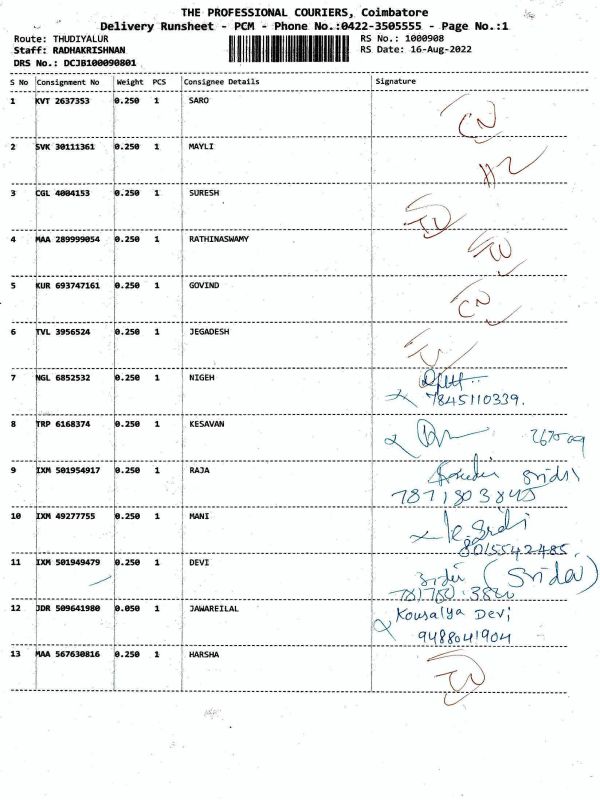 THE PROFESSIONAL COURIERS, Coimbatore
Delivery Runsheet - PCM - Phone No.:0422-3505555 - Page No.:1
Route: THUDIYALUR RS No.: 1000908
Staff: RADHAKRISHNAN RS Date: 16-Aug-2022
DRS No.: DCJB100090801
S No Consignment No Weight PCS Consignee Details Signature
1 KVT 2637353 0.250 1 SARO
2 SVK 30111361 0.250 1 MAYLI
3 CGL 4004153 0.250 1 SURESH
4 MAA 289999054 0.250 1 RATHINASWAMY
5 KUR 693747161 0.250 1 GOVIND
6 TVL 3956524 0.250 1 JEGADESH
7 NGL 6852532 0.250 1 NIGEH
7845110339.
8 TRP 6168374 0.250 1 KESAVAN
9 IXM 501954917 0.250 1 RAJA
10 IXM 49277755 0.250 1 MANI
8015542485.
11 IXM 501949479 0.250 1 DEVI
12 JDR 509641980 0.050 1 JAWAREILAL Kousalya Devi
9488041904
13 MAA 567630816 0.250 1 HARSHA